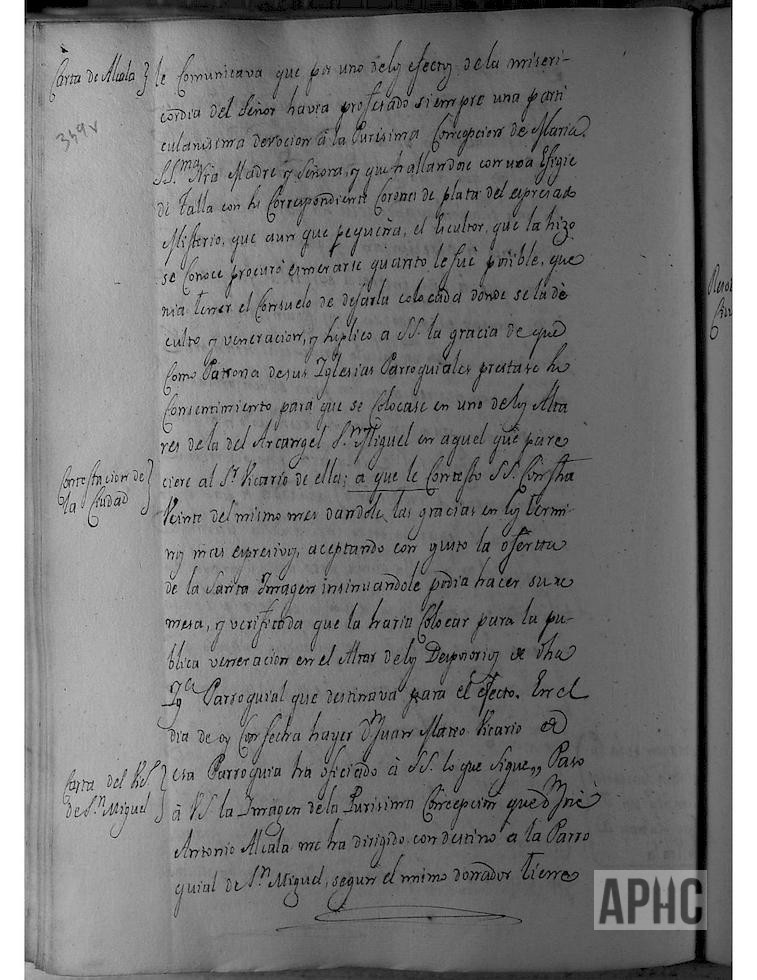 Carta de Alcala } le Comunicava que por uno delos efectos de la miseri-
349v
cordia del Señor havia profesado siempre una parti
cularissima devocion à la Purisima Concepcion de Maria
SS.ma Nra Madre y Señora, y que hallandose con una Efigie
de Talla con su Correspondiente Corona de plata del espresado
Misterio, que aun que pequeña, el Escultor, que la hizo
se Conoce procuró esmerarse quanto le fué posible, que
ria tener el Consuelo de dejarla colocada donde se la dè
culto y veneracion, y suplico a SS. la gracia de que
Como Patrona de sus Iglesias Parroquiales prestase su
Consentimiento para que se Colocase en uno delos Alta
res de la del Arcangel S.n Miguel en aquel que pare
Contestacion de
la Ciudad }
ciere al S.r Vicario de ella; a que le Contesto SS. Con fha
Veinte del mismo mes dandole las gracias en los termi
nos mas espresivos, aceptando con gusto la oferta
de la Santa Imagen insinuandole podia hacer su re
mesa, y verificada que la haria Colocar para la pu-
blica veneracion en el Altar delos Desposorios de dha
Ig.a Parroquial que destinava para el efecto. En el
dia de oy Con fecha hayer D.n Juan Mateo Vicario de
Carta del Vic.
de S.n Miguel }
esa Parroquia ha oficiado à SS. lo que sigue,, Paso
à VS. la Imagen de la Purisima Concepcion que D.n José
Antonio Alcala me ha dirigido con destino à la Parro
quial de S.n Miguel, segun el mismo donador tiene
APHC